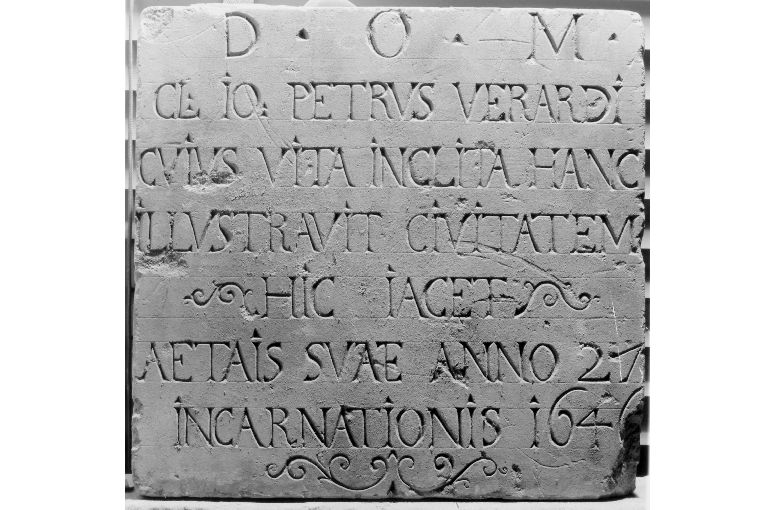 D · O · M ·
CL IO. PETRVS VERARDI
CVIVS VITA INCLITA HANC
ILLVSTRAVIT CIVITATEM
HIC IACET
AETAIS SVAE ANNO 27
INCARNATIONIS 1646